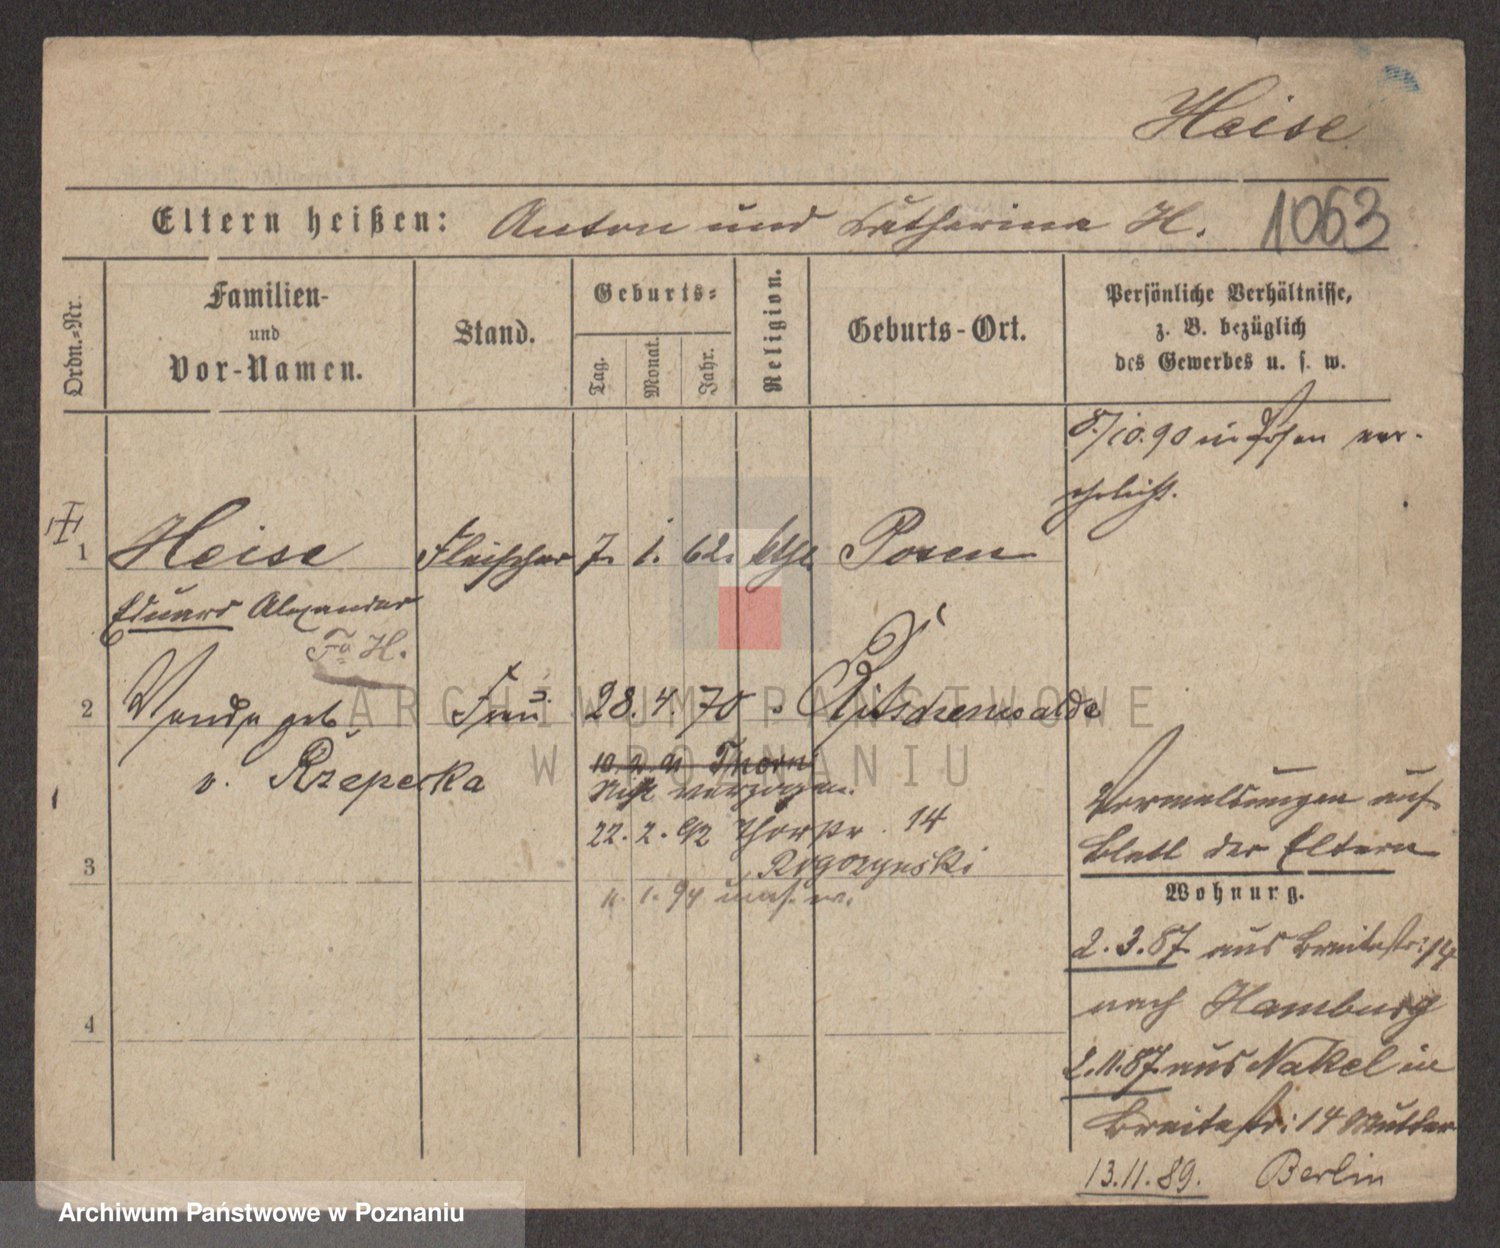 Heise
Eltern heißen: Anton und Katharina H. 1063
Ordn.-Nr.
Familien-
und
Vor-Namen.
Stand.
Geburts-
Tag.
Monat.
Jahr.
Religion.
Geburts-Ort.
Persönliche Verhältnisse,
z. B. bezüglich
des Gewerbes u. s. w.
8/10.90 in Posen ver-
ehelicht.
1 Heise Fleischer 7. 1. 62. kth. Posen
Eduard Alexander
Fa H.
2 Wanda geb. Frau 28. 4. 70 Ritschenwalde
v. Rzepecka
10. 2. 91 Thorn
Nicht verzogen.
22. 2. 92 Thorstr. 14
Rogozynski
3
1. 94
4
Vermeldungen auf
Blatt der Eltern
Wohnung.
2. 3. 87. aus Breitestr: 14
nach Hamburg
2. 11. 87 aus Nakel in
Breitestr: 14 Mutter
13. 11. 89. Berlin
ARCHIWUM PAŃSTWOWE
W POZNANIU
Archiwum Państwowe w Poznaniu